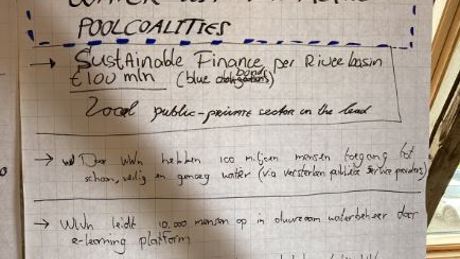 POOLCOALITIES
→ SustAinable Finance per River basin
€100 mln (blue bond)
Local public-private sector in the lead
→ Door WWn hebben 100 miljoen mensen toegang tot
schoon, veilig en genoeg water (via versterken publieke service providing)
→ WWn leidt 10.000 mensen op in duurzaam waterbeheer door
e-learning platform